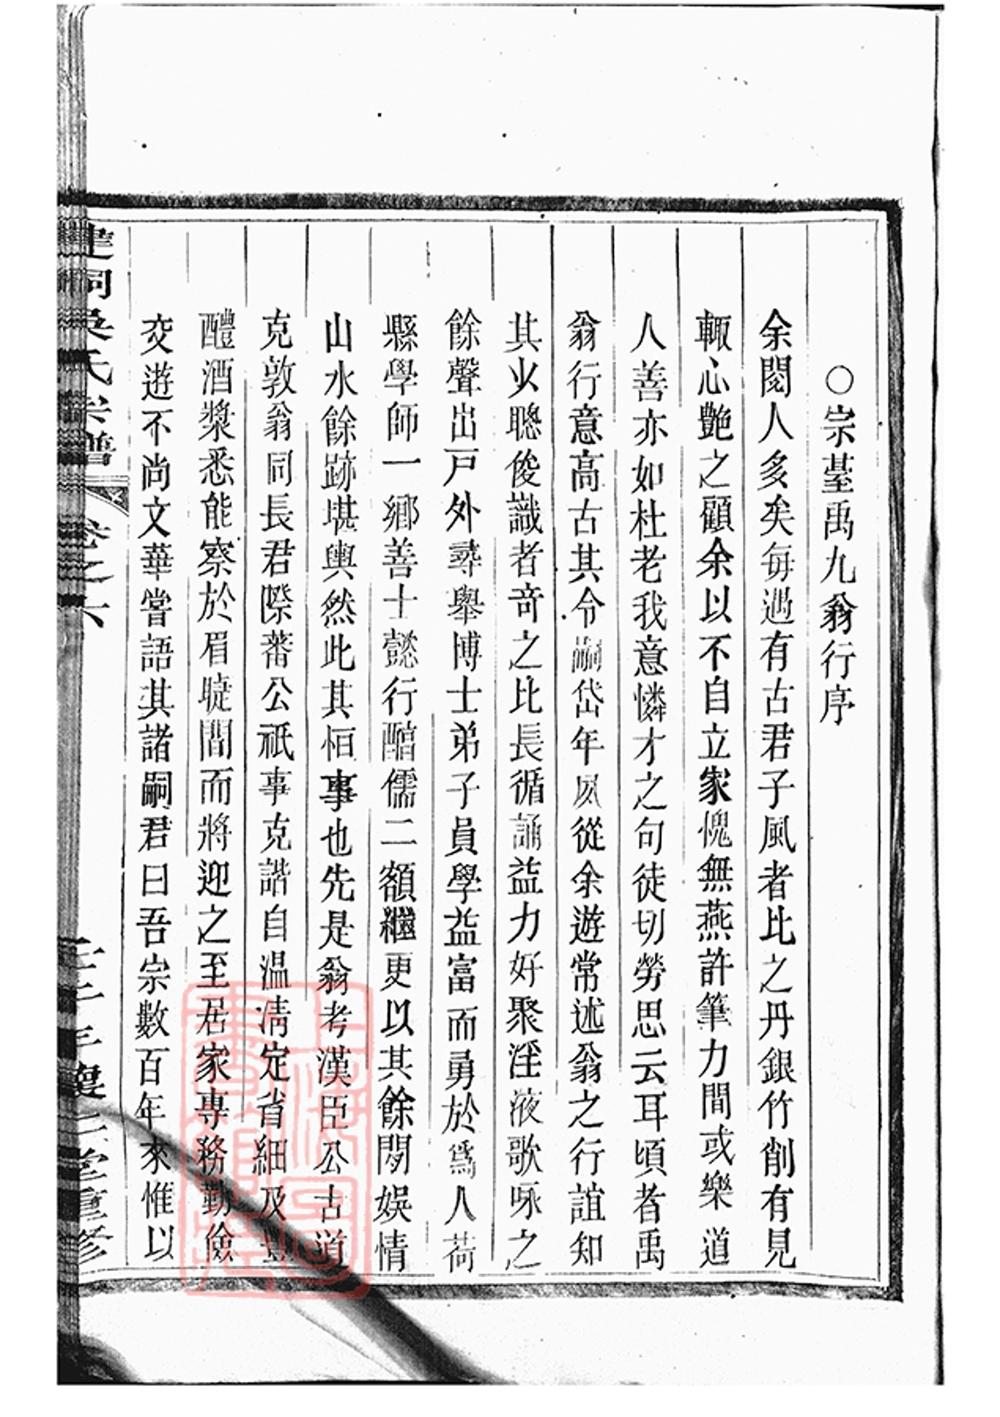 ○宗臺禹九翁行序
余閱人多矣每遇有古君子風者比之丹銀竹削有見
輒心艷之顧余以不自立家愧無燕許筆力間或樂道
人善亦如杜老我意憐才之句徒切勞思云耳頃者禹
翁行意高古其令嗣岱年夙從余遊常述翁之行誼知
其少聰俊識者奇之比長循誦益力好聚淫液歌咏之
餘聲出戸外尋舉博士弟子員學益富而勇於爲人荷
縣學師一鄉善士懿行醕儒二額繼更以其餘閒娛情
山水餘跡堪輿然此其恒事也先是翁考漢臣公古道
克敦翁同長君際蕃公祇事克諧自温凊定省細及豐
醴酒漿悉能察於眉睫間而將迎之至居家專務勤儉
交遊不尚文華嘗語其諸嗣君曰吾宗數百年來惟以
吳氏宗譜
卷之六
堂重修